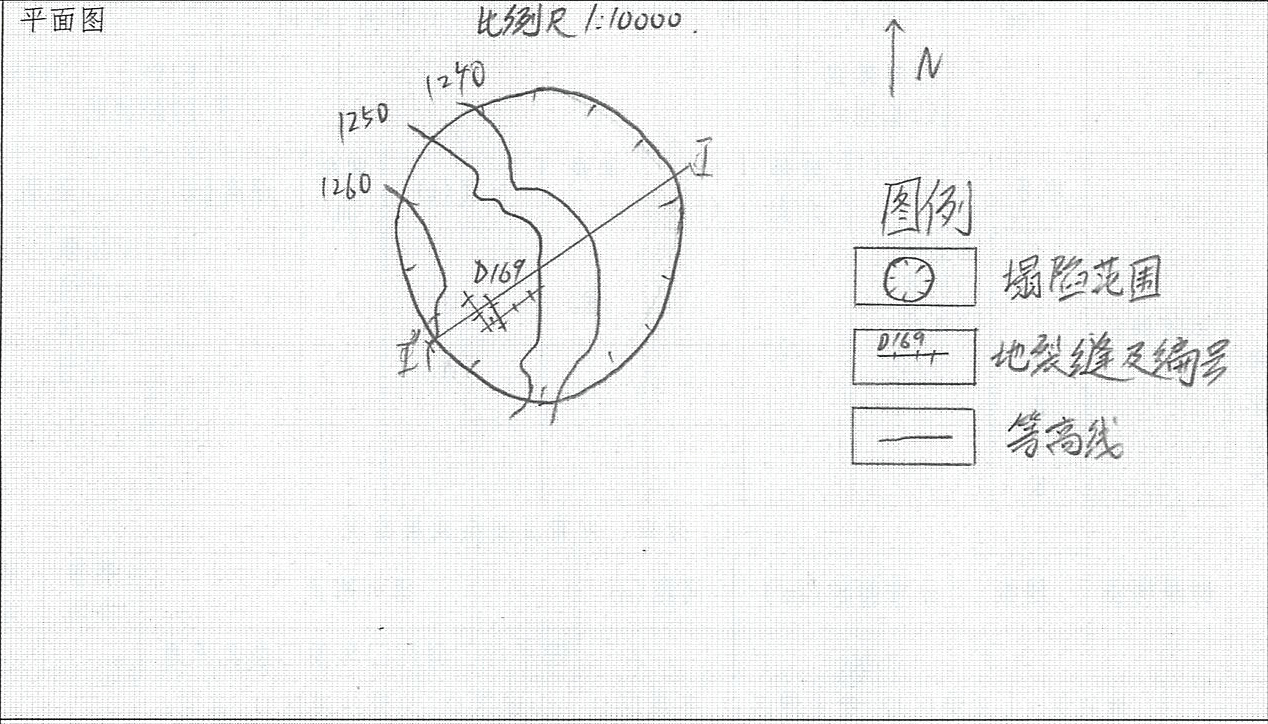 平面图
比例尺 1:10000.
N
1240
1250
1260
I
D169
I'
图例
塌陷范围
D169
地裂缝及编号
等高线